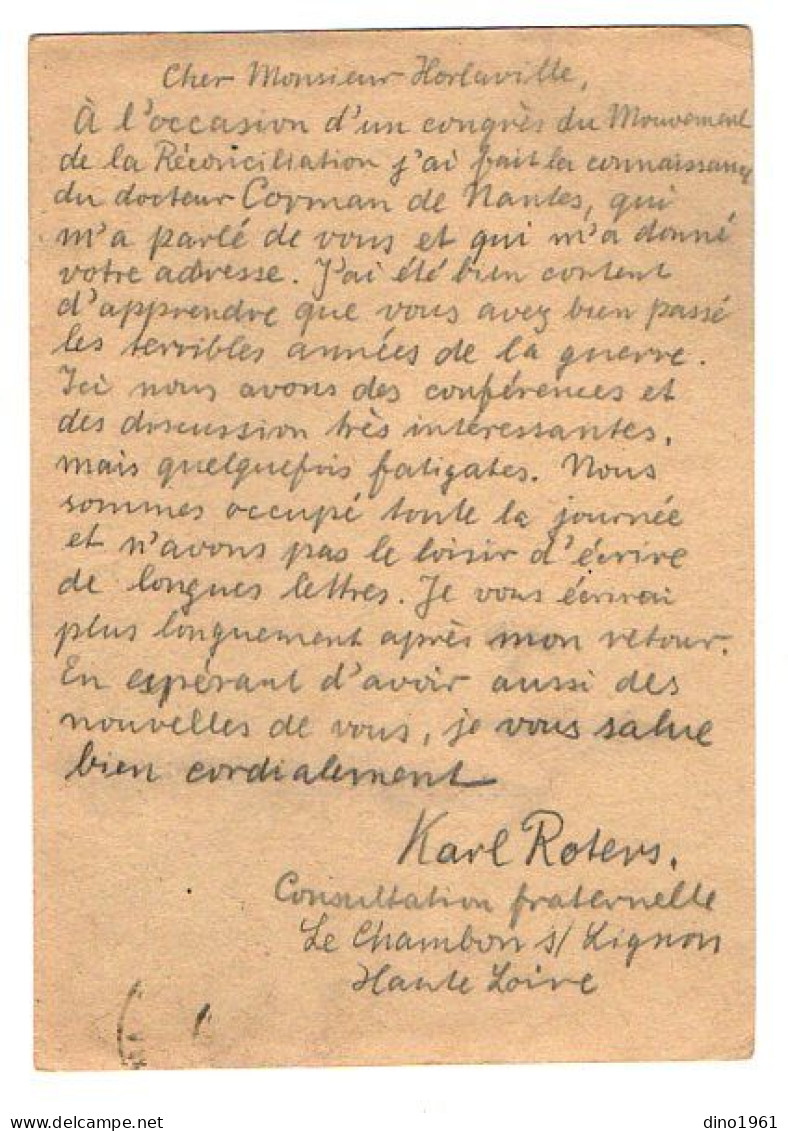 Cher Monsieur Horlaville,
À l'occasion d'un congrès du Mouvement
de la Réconciliation j'ai fait la connaissance
du docteur Corman de Nantes, qui
m'a parlé de vous et qui m'a donné
votre adresse. J'ai été bien content
d'apprendre que vous avez bien passé
les terribles années de la guerre.
Ici nous avons des conférences et
des discussion très intéressantes,
mais quelquefois fatigates. Nous
sommes occupé toute la journée
et n'avons pas le loisir d'écrire
de longues lettres. Je vous écrirai
plus longuement après mon retour.
En espérant d'avoir aussi des
nouvelles de vous, je vous salue
bien cordialement
Karl Roters.
Consultation fraternelle
Le Chambon s/ Lignon
Haute Loire
dino1961